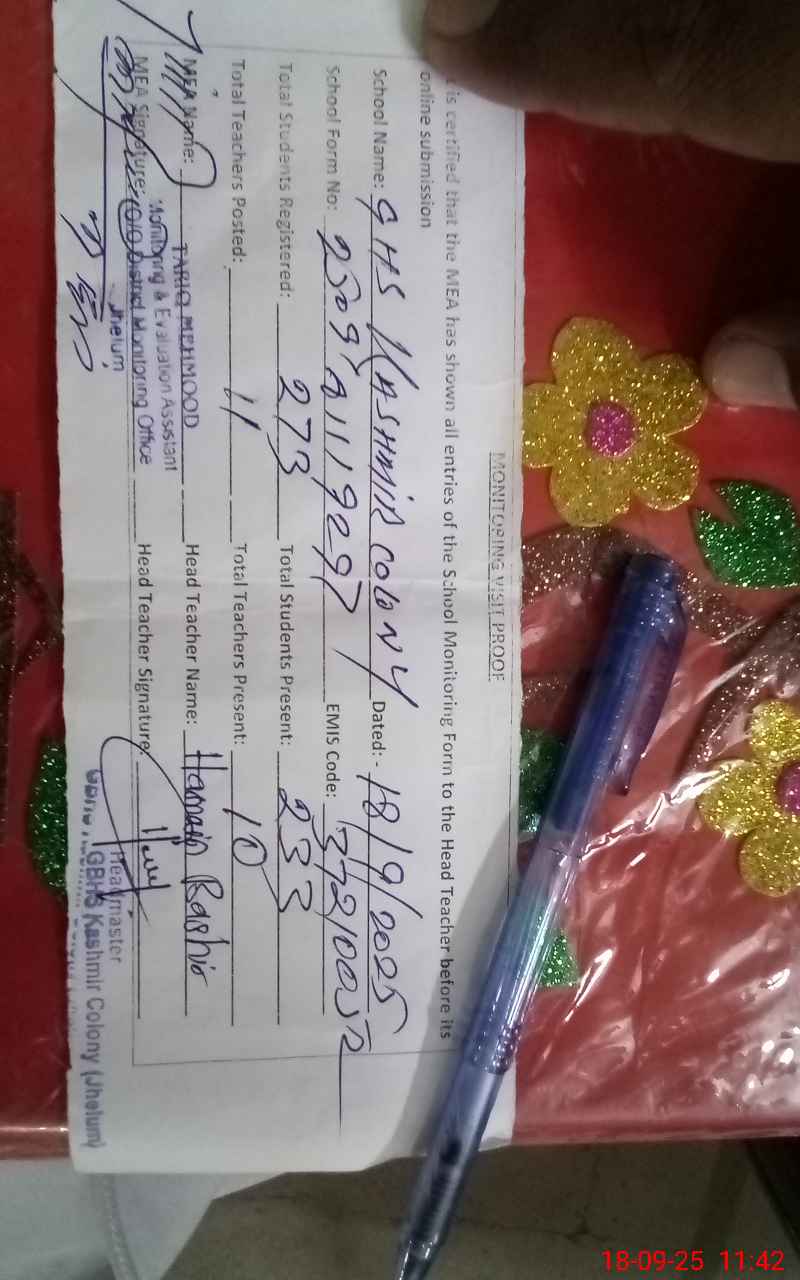 MONITORING VISIT PROOF
is certified that the MEA has shown all entries of the School Monitoring Form to the Head Teacher before its
online submission
School Name: GHS KASHMIR COLONY Dated:- 18/9/2025
School Form No: EMIS Code:
Total Students Registered: 273 Total Students Present: 233
Total Teachers Posted: 11 Total Teachers Present: 10
MEA Name: TARIQ MEHMOOD Head Teacher Name: Bashir
Monitoring & Evaluation Assistant
MEA Signature: O/O District Monitoring Office Head Teacher Signature:
Jhelum
Headmaster
GBHS Kashmir Colony (Jhelum)
18-09-25 11:42